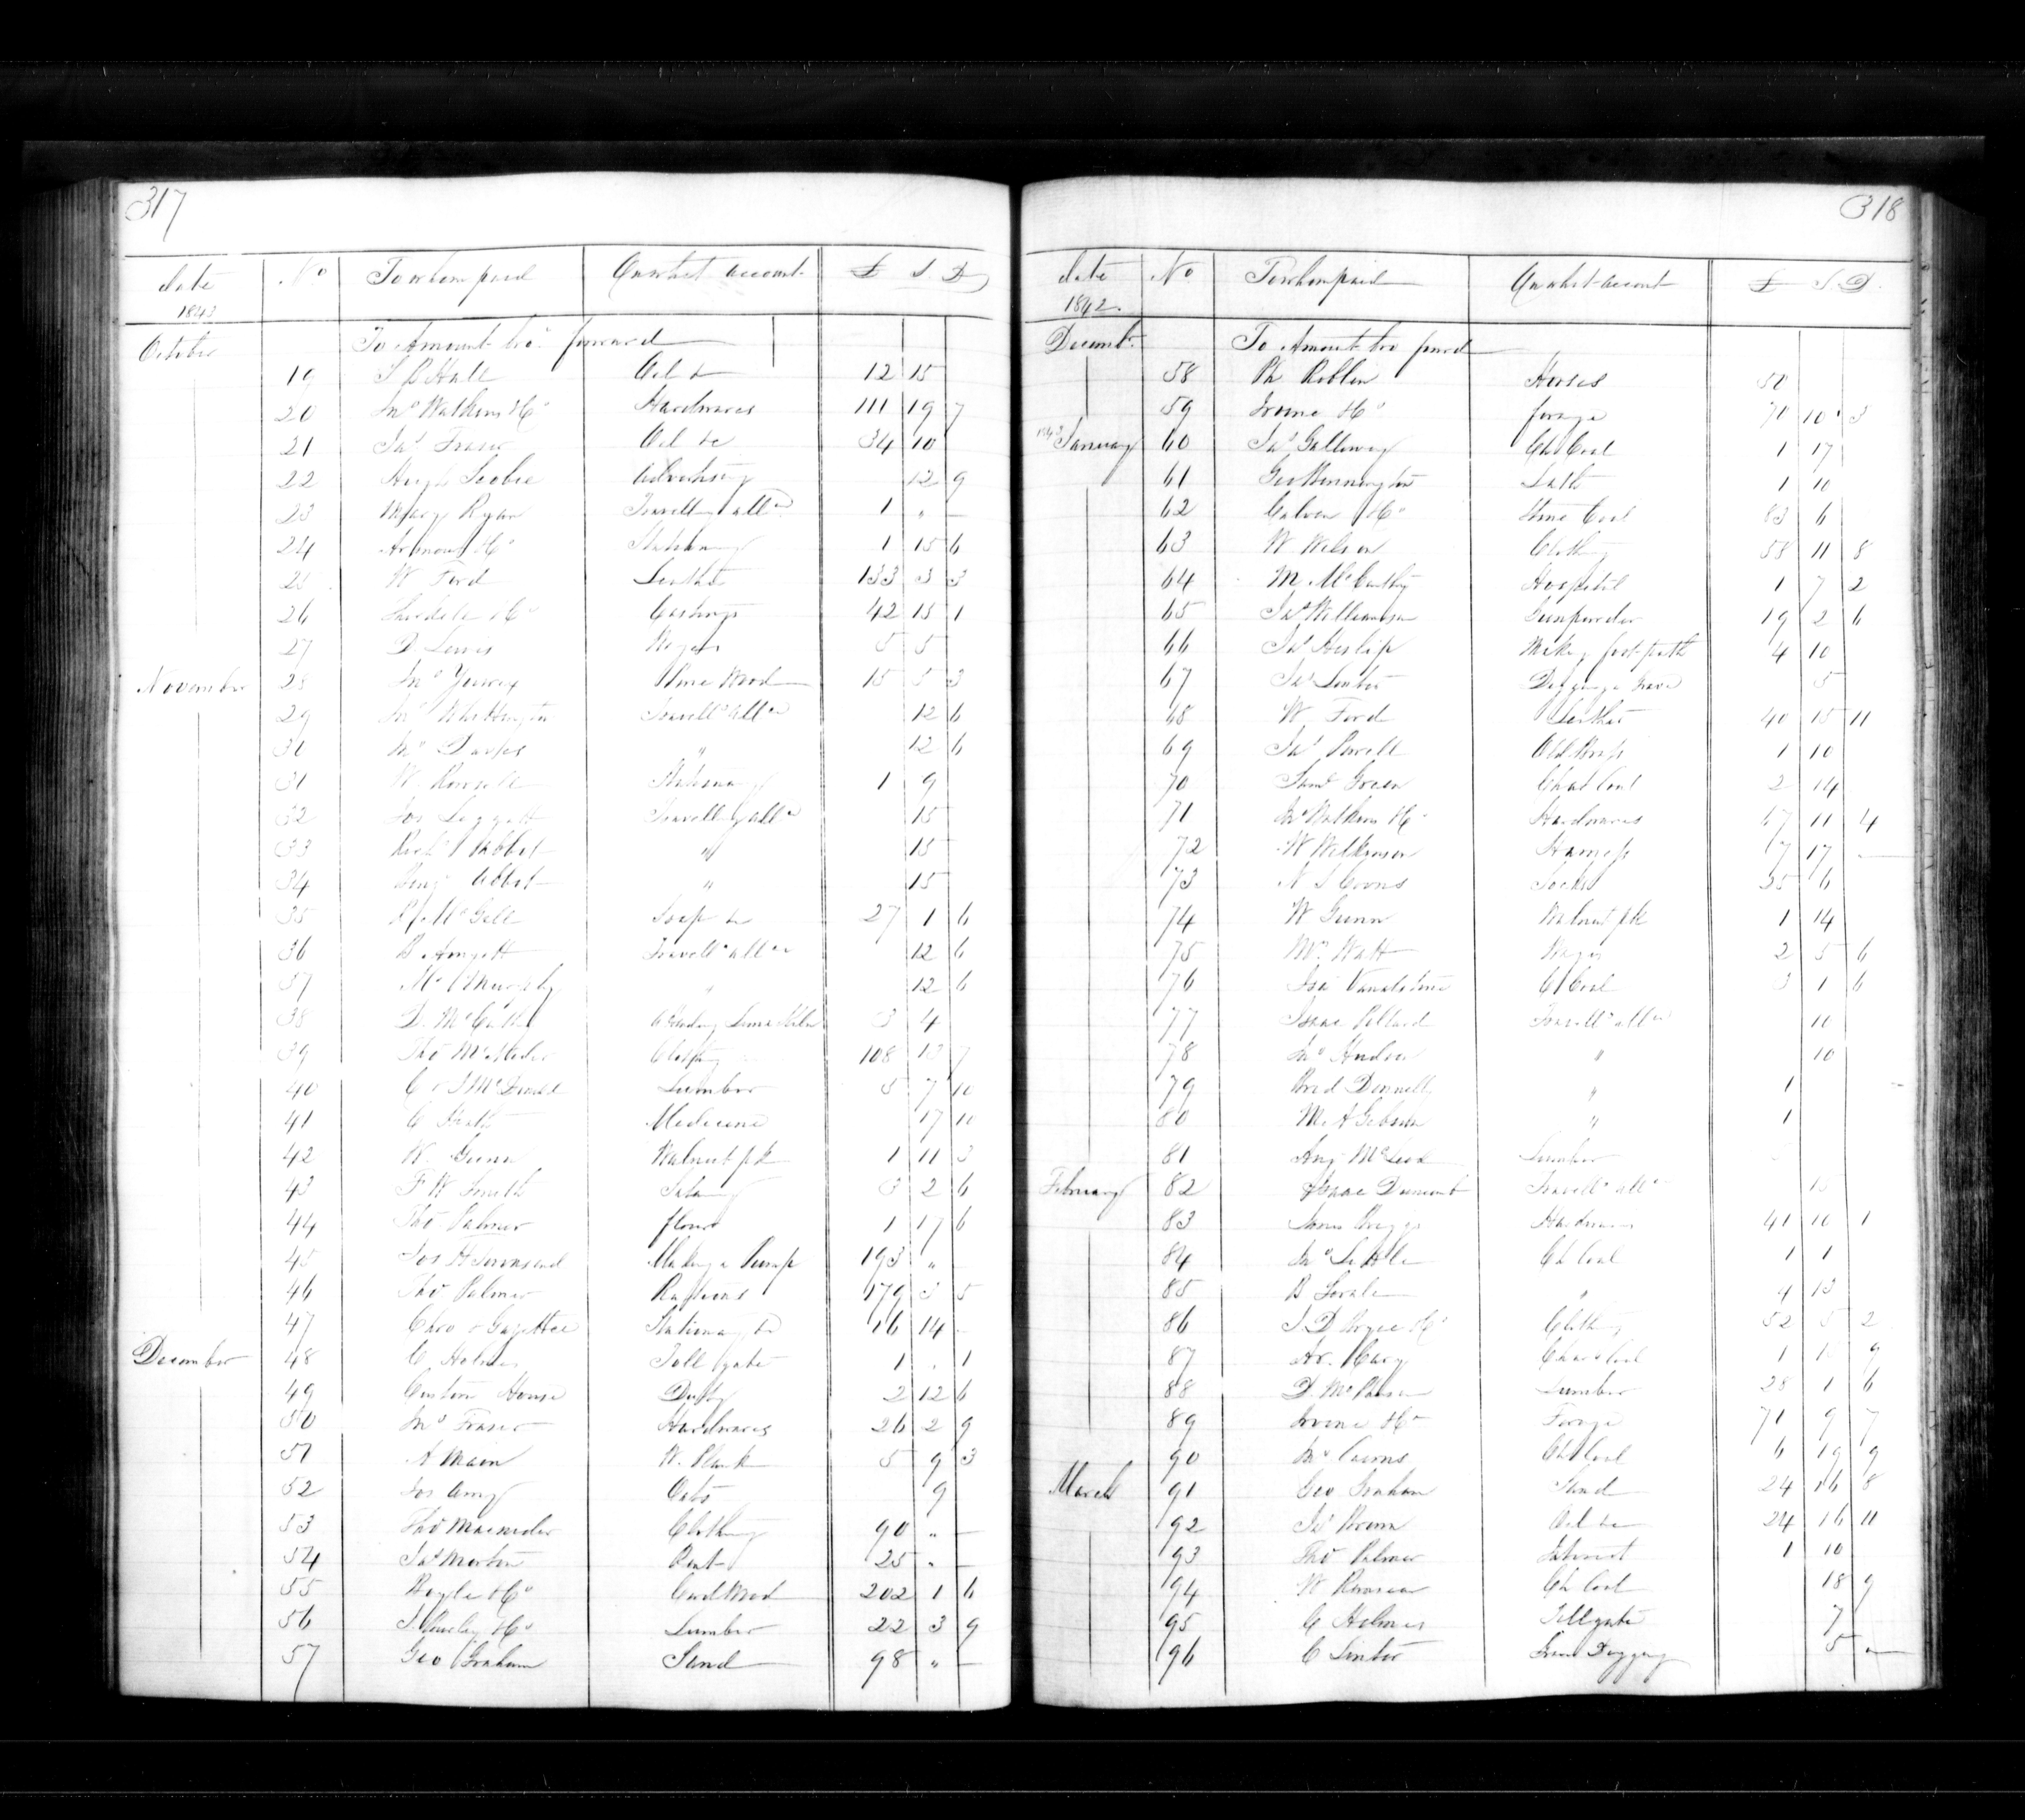 317
date No To whom paid On what account £ S D
1842
October To Amount bro. forward
19 S B Hall Oil &c 12 15
20 Jno Watkins & Co Hardwares 111 19 7
21 Jas Fraser Oil &c 34 10
22 Hugh Scobie Advertising 12 9
23 Mary Ryan Travelling allce 1 " —
24 Armour & Co Stationary 1 15 6
25 W Ford Leather 133 3 3
26 & Co Castings 42 15 1
27 D Lewis Wages 5 5
November 28 Jno Yourex Pine Wood 15 5 3
29 Jno Whittington Travellg allce 12 6
30 Jno Davies " 12 6
31 W Rowsell Stationary 1 9
32 Jos Leggett Travelling allce 15
33 Richd Abbot " 15
34 Abbot " 15
35 McGill Soap &c 27 1 6
36 B Travellg allce 12 6
37 Murphy " 12 6
38 D. McCarthy Lime Kiln 3 4
39 Tho McNeder Clothing 108 13 7
40 C & J McDonald Lumber 5 7 10
41 C Heath Medicine 17 10
42 W. Gunn Walnut plk 1 11 3
43 F W Smith Salary 3 2 6
44 Tho Palmer flour 1 17 6
45 Jos H Townsend Making a Pump 193 "
46 Tho Palmer Rations 179 3 5
47 Chro & Gazettee Stationary &c 16 14 -
December 48 C Holmes Toll gate 1 . 1
49 Custom House Duty 2 12 6
50 Jno Fraser Hardwares 26 2 9
51 A Main W. Plank 5 9 3
52 Jos Amey Oats 9
53 Tho Macnider Clothing 90 " —
54 Jas Morton Rent 25 " —
55 Hoyle & Co Cord Wood 202 1 6
56 & Co Lumber 22 3 9
57 Geo Graham Sand 98 " —
318
date No To whom paid On what account £ S D.
1842.
Decembr. To Amount bro forwd
58 Ph Roblin Horses 50
59 Irvine & Co forage 70 10 3
1843 January 60 Jas Galloway Ch Coal 1 17
61 Geo Bennington Lath 1 10
62 Calvin & Co Stone Coal 83 6
63 W Wilson Clothing 58 11 8
64 M McCarthy Hospital 1 7 2
65 Jas Williamson Gunpowder 19 2 6
66 Jas Heslip Making foot path 4 10
67 Jas Linton Digging a Grave 5
68 W. Ford Leather 40 15 11
69 Jas Powell Old 1 10
70 Saml Green Char Coal 2 14
71 Jno Watkins & Co Hardwares 67 11 4
72 W Wilkinson Harness 7 17 —
73 N S Coons Locks 35 6
74 W Gunn Walnut plk 1 14
75 Wm Watt Wages 2 5 6
76 Isa Vanalstine C Coal 3 1 6
77 Isaac Pollard Travellg allce 10
78 Jno Hudson " 10
79 Bred Donnelly " 1
80 M. A Gibson " 1
81 Ang McLeod Lumber
February 82 Isaac Duncomb Travellg allce 15
83 James Briggs Hardwares 41 10 1
84 Jno Little Ch Coal 1 1
85 B " 4 13
86 J D Bryce & Co Clothing 52 5 2
87 Ar. Cary Char Coal 1 10 9
88 D. McPherson Lumber 28 1 6
89 Irvine & Co Forage 71 9 7
90 Jno Cairns Ch Coal 6 19 9
March 91 Geo Graham Sand 24 16 8
92 Jas Brown Oil &c 24 16 11
93 Tho Palmer Interest 1 10
94 W Ch Coal 18 9
95 C Holmes Tollgate 7
96 C Linton Grave Digging 5 —